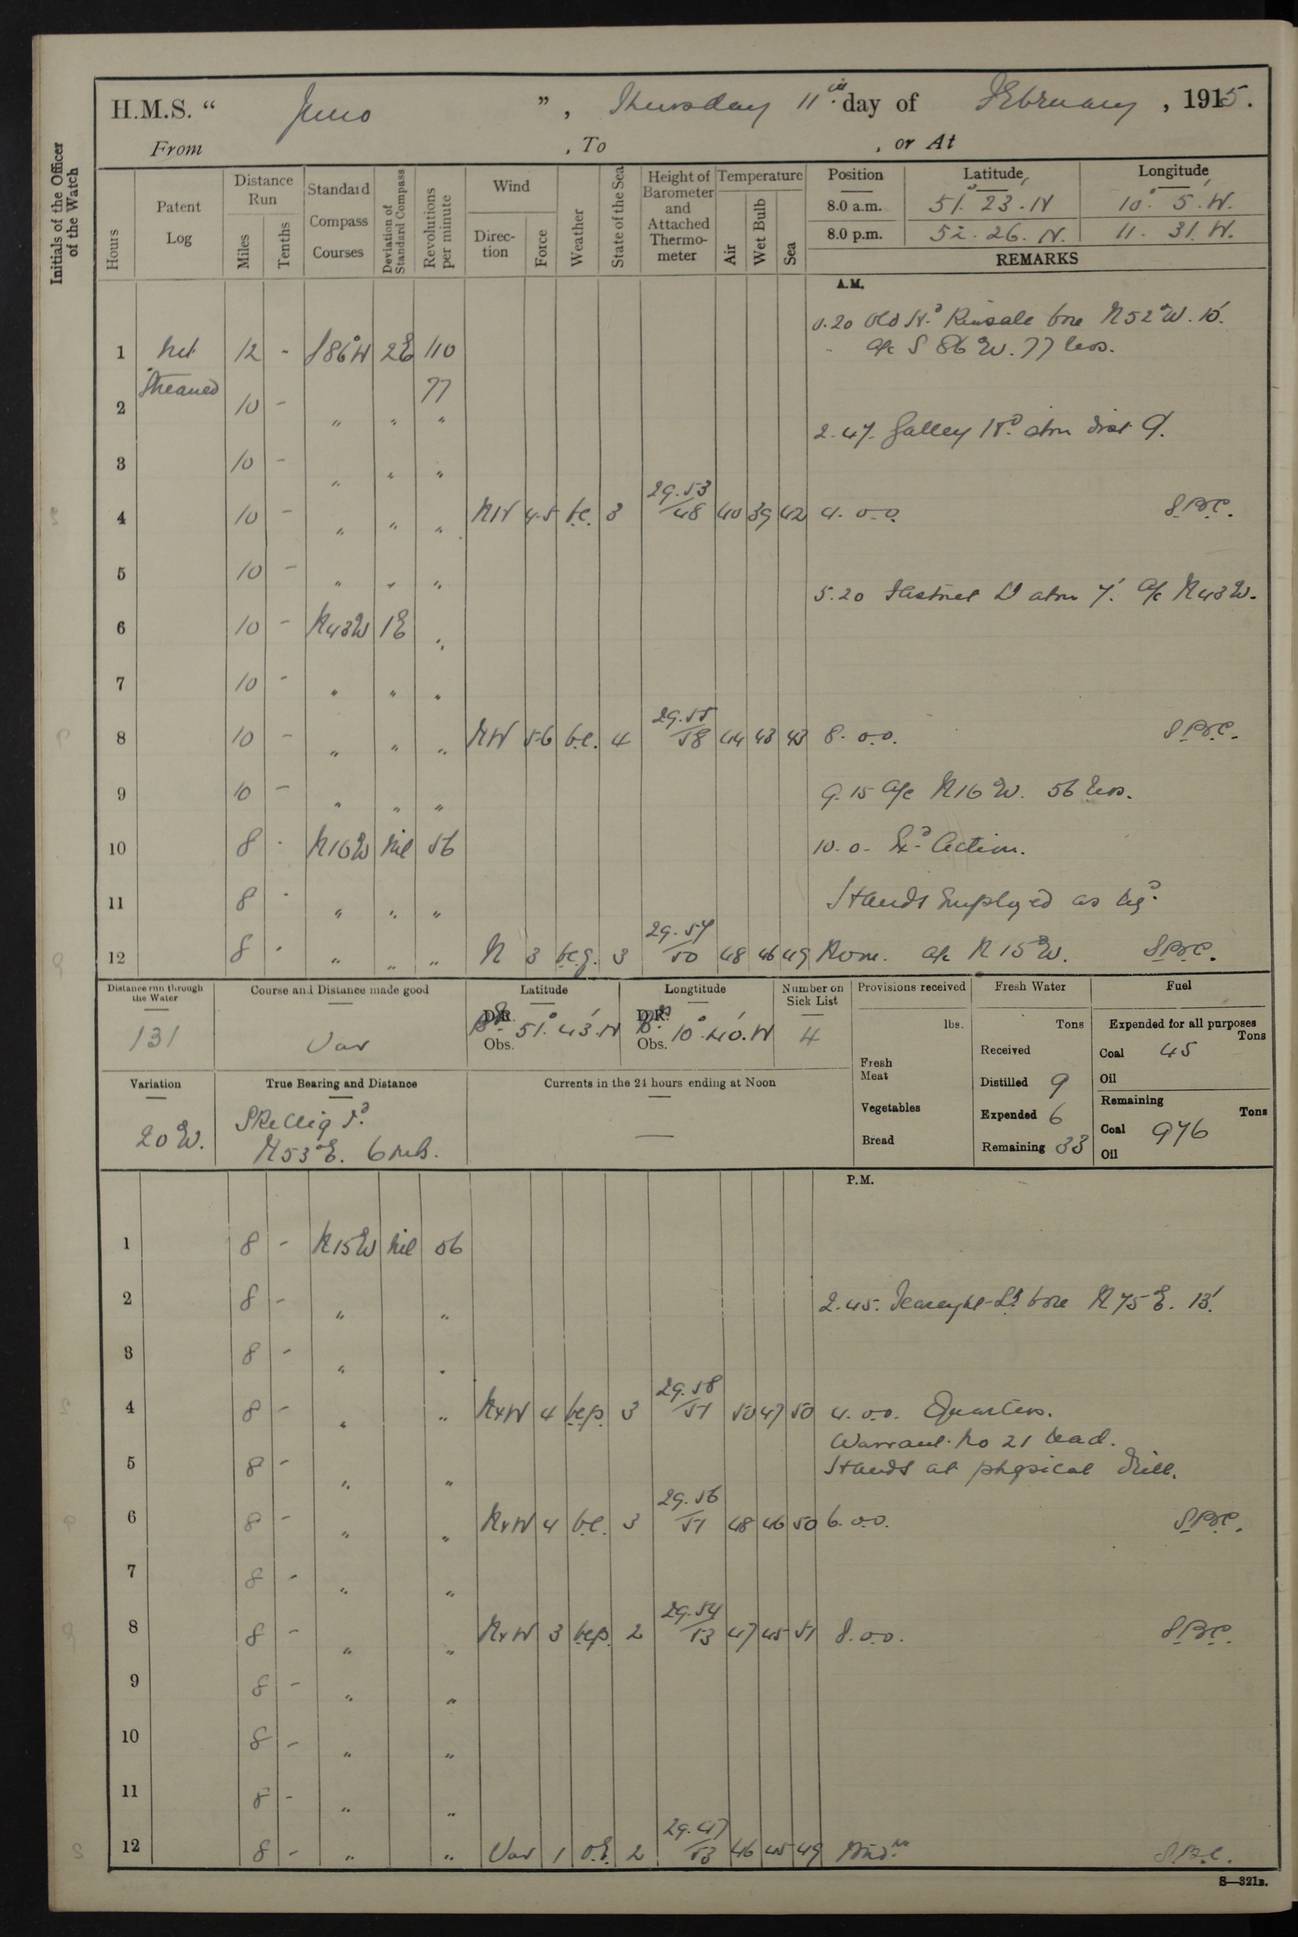 H.M.S. “ Juno ”, Thursday 11th day of February, 1915.
From , To , or At
Initials of the Officer of the Watch
Hours
Patent Log
Distance Run
Miles
Tenths
Standard Compass Courses
Deviation of Standard Compass
Revolutions per minute
Wind
Direction
Force
Weather
State of the Sea
Height of Barometer and Attached Thermometer
Temperature
Air
Wet Bulb
Sea
Position Latitude Longitude
8.0 a.m. 51° 23' N 10° 5' W.
8.0 p.m. 52. 26. N. 11. 31. W.
REMARKS
A.M.
0.20 Old Hd Kinsale bore N52°W. 10'.
1 Not 12 - S86°W 2E 110 a/c S 86 W. 77 revs.
2 Streamed 10 - " " 77 "
2.47. Galley Hd abm dist 9'.
3 10 - " " "
4 10 - " " " NW 4.5 b.c. 3 29.53/48 40 39 42 4.0.0.
5 10 - " " "
5.20 Fastnet Lt abm 7'. a/c N43W.
6 10 - N43W 1E "
7 10 - " " "
8 10 - " " " NW 5-6 b.c. 4 29.55/58 44 43 43 8.0.0.
9 10 - " " " 9.15 a/c N16W. 56 revs.
10 8 - N16W Nil 56 10.0. Exd Action.
11 8 - " " " Hands Employed as reqd.
12 8 - " " " N 3 b.c.q. 3 29.57/50 48 46 49 Noon. a/c N 15°W.
Distance run through the Water 131
Course and Distance made good Var
Latitude D.R. Obs. 51° 43' N
Longtitude D.R. Obs. 10° 40'. W
Number on Sick List 4
Provisions received lbs.
Fresh Meat
Vegetables
Bread
Fresh Water Tons
Received
Distilled 9
Expended 6
Remaining 33
Fuel
Expended for all purposes Tons
Coal 45
Oil
Remaining Tons
Coal 976
Oil
Variation 20 W.
True Bearing and Distance
Skellig Id
N53°E. 6 mls.
Currents in the 24 hours ending at Noon —
P.M.
1 8 - N15W Nil 56
2 8 - " " 2.45. Tearaght Lt bore N 75 E. 13'.
3 8 - " "
4 8 - " " NxW 4 b.c.p. 3 29.58/51 50 47 50 4.0.0. Quarters.
Warrant No 21 read.
5 8 - " " Hands at physical drill.
6 8 - " " NxW 4 b.c. 3 29.56/51 48 46 50 6.0.0.
7 8 - " "
8 8 - " " NxW 3 b.c.p. 2 29.54/53 47 45 51 8.0.0.
9 8 - " "
10 8 - " "
11 8 - " "
12 8 - " " Var 1 2 29.47/53 46 45 49 Midt
S—321B.